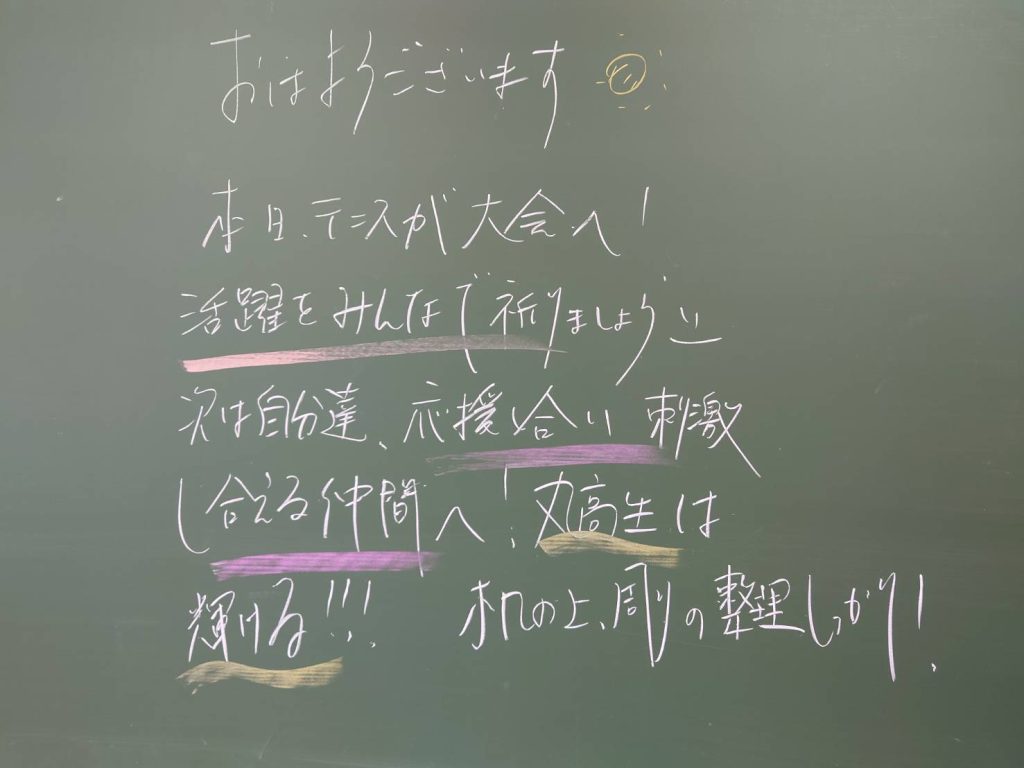 おはようございます
本日、テニスが大会へ!
活躍をみんなで祈りましょう
次は自分達、応援し合い 刺激
し合える仲間へ! 丸高生は
輝ける!!! 机の上、周りの整理しっかり!